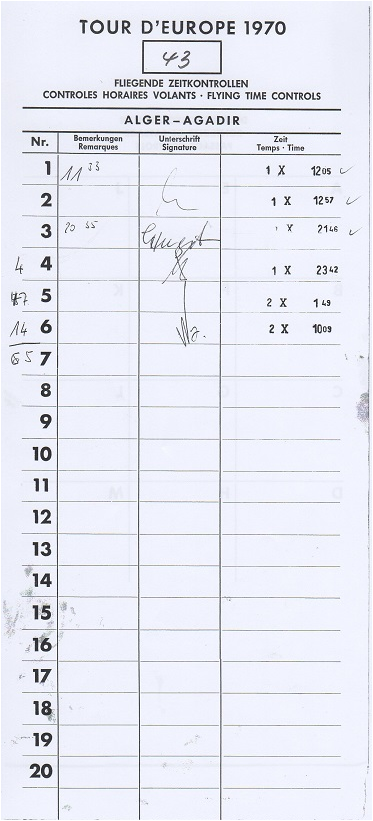 TOUR D'EUROPE 1970
43
FLIEGENDE ZEITKONTROLLEN
CONTROLES HORAIRES VOLANTS · FLYING TIME CONTROLS
ALGER–AGADIR
Nr. Bemerkungen Unterschrift Zeit
Remarques Signature Temps · Time
1 11 33 1 X 12 05 ✓
2 1 X 12 57 ✓
3 20 55 1 X 21 46 ✓
4 4 1 X 23 42
5 2 X 1 49
14 6 2 X 10 09
7
8
9
10
11
12
13
14
15
16
17
18
19
20